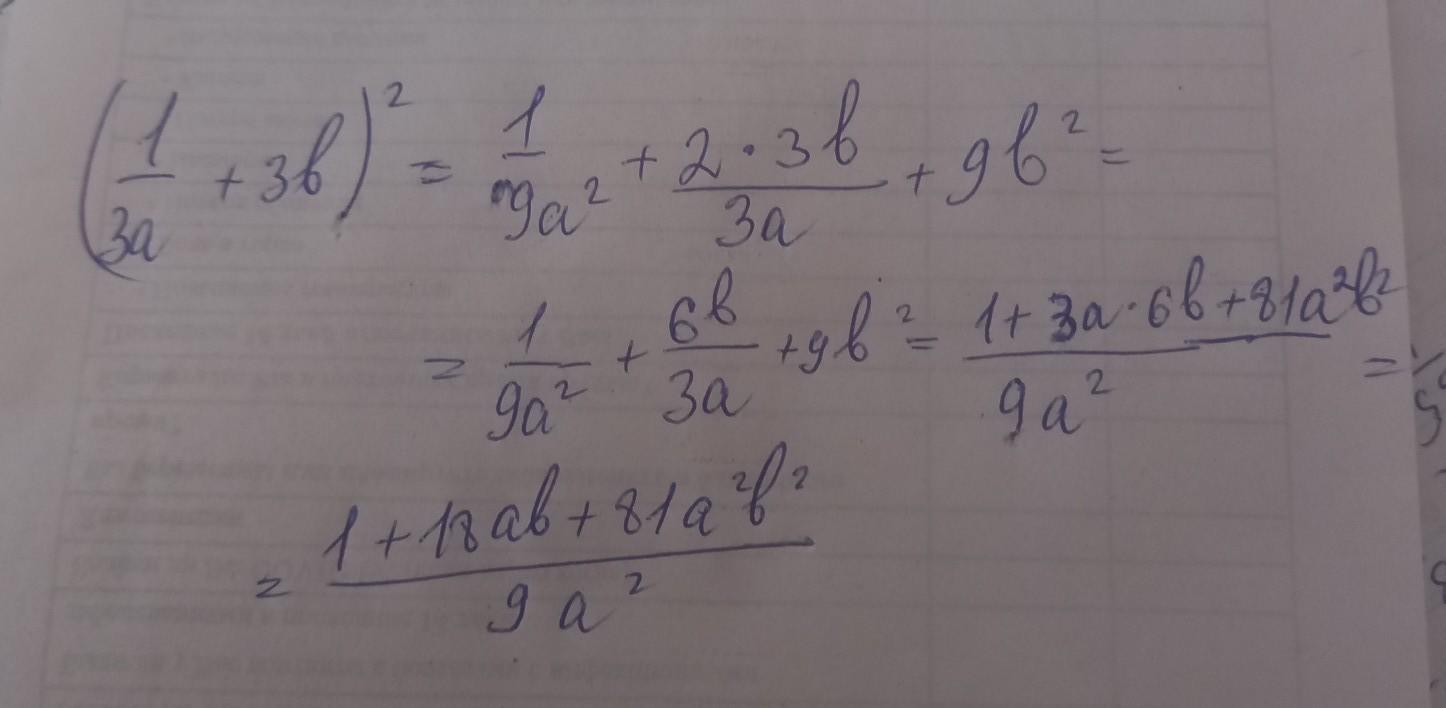 (1/3a + 3b)² = 1/9a² + 2·3b/3a + 9b² =
= 1/9a² + 6b/3a + 9b² = 1+3a·6b+81a²b²/9a² =
= 1+18ab+81a²b²/9a²